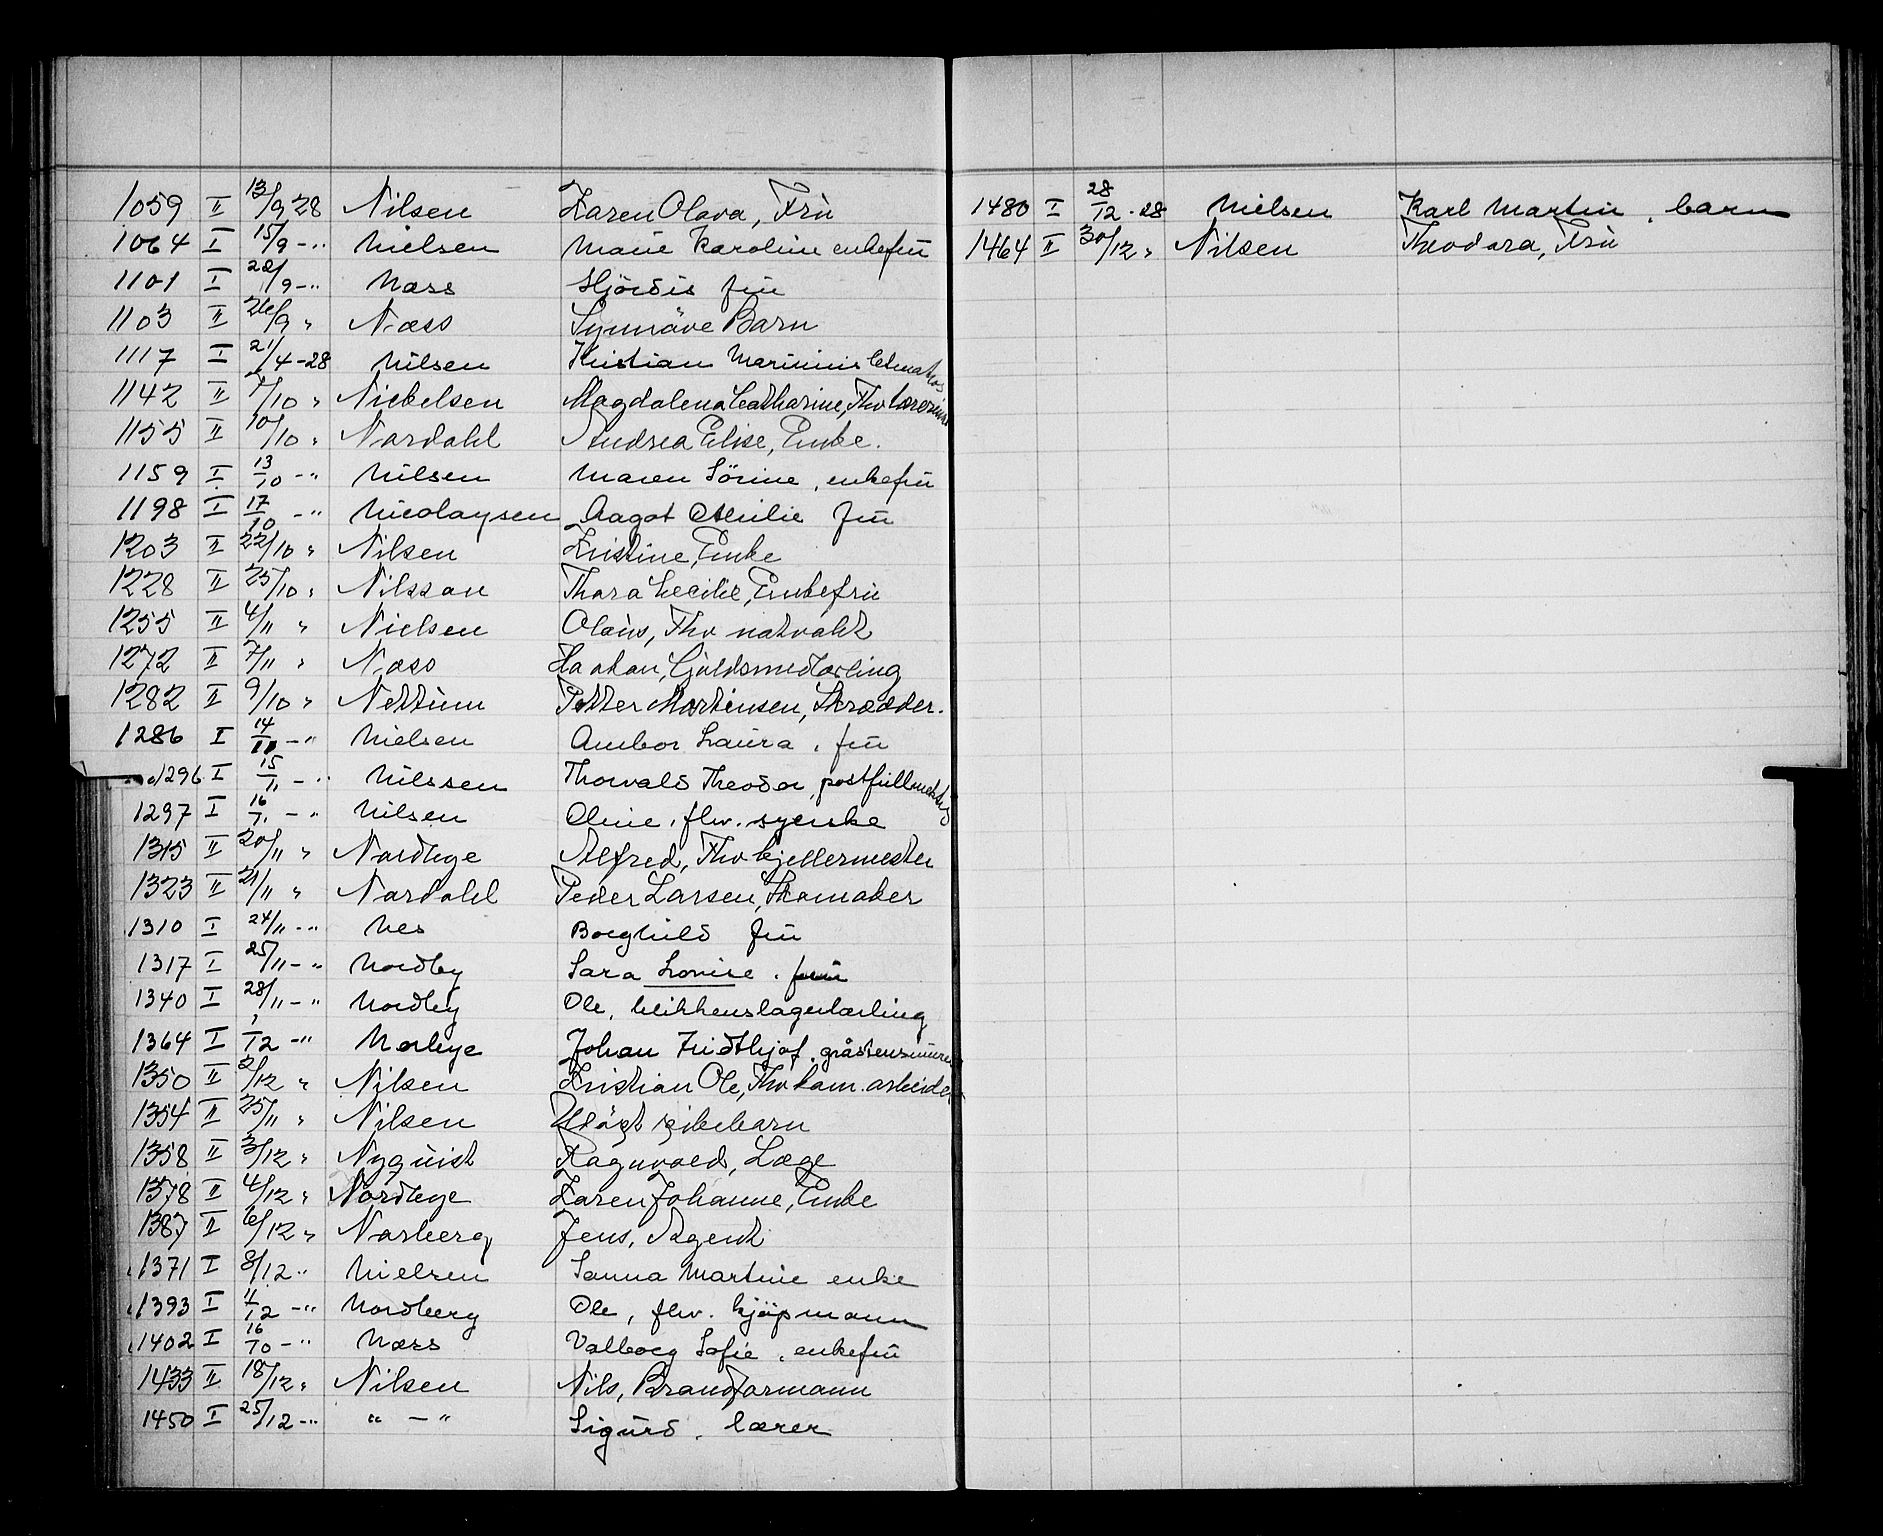 1059 II 13/9 28 Nilsen Karen Olava, Fru
1064 I 15/9 -" Nielsen Marie Karoline enkefru
1101 I 22/9 -" Næss Hjördis fru
1103 II 26/9 " Næss Synnöve Barn
1117 I 21/4 -28 Nilsen Kristian Marinius
1142 II 7/10 " Nickelsen Magdalena Catharine, Fhv lærerinne
1155 II 10/10 " Nordahl Andrea Elise, Enke.
1159 I 13/10 -" Nilsen Maren Sörine, enkefru
1198 I 17/10 -" Nicolaysen Aagot Otilie fru
1203 II 22/10 " Nilsen Kristine, Enke
1228 II 25/10 " Nilsson Thora Cecilie, Enkefru
1255 II 4/11 " Nielsen Olaus, Fhv natvakt
1272 II 7/11 " Næss Haakon, Guldsmedlærling
1282 II 9/10 " Nettum Petter Martinsen, Skrædder.
1286 I 14/11 -" Nielsen Ambor Laura, fru
1296 I 15/11 -" Nilssen Thorvald Theodor, postfullmektig
1297 I 16/11 -" Nilsen Oline, fhv. syerske
1315 II 20/11 " Nordhye Alfred, Fhv kjellermester
1323 II 21/11 " Nordahl Peder Larsen, Skomaker
1310 I 24/11 -" Nes Borghild fru
1317 I 25/11 -" Nordby Sara Lovise, fru
1340 I 28/11 -" Nordby Ole, blikkenslagerlærling
1364 I 1/12 -" Norbye Johan Fridthjof, gråstensmurer
1350 II 2/12 " Nilsen Kristian Ole, Fhv kom. arbeider
1354 II 25/11 " Nilsen Udöpt pikebarn
1358 II 3/12 " Nyquist Ragnvald, Læge
1378 II 4/12 " Nordbye Karen Johanne, Enke
1387 II 6/12 " Norberg Jens, Agent
1371 I 8/12 " Nielsen Sanna Martine enke
1393 I 11/12 -" Nordberg Ole, fhv. kjöpmann
1402 I 16/10 -" Næss Valborg Sofie, enkefru
1433 II 18/12 " Nilsen Nils, Brandformann
1450 I 25/12 -" " - " Sigurd, lærer
1480 I 28/12 -28 Nielsen Karl Martin, barn
1464 II 30/12 " Nilsen Theodora, Fru